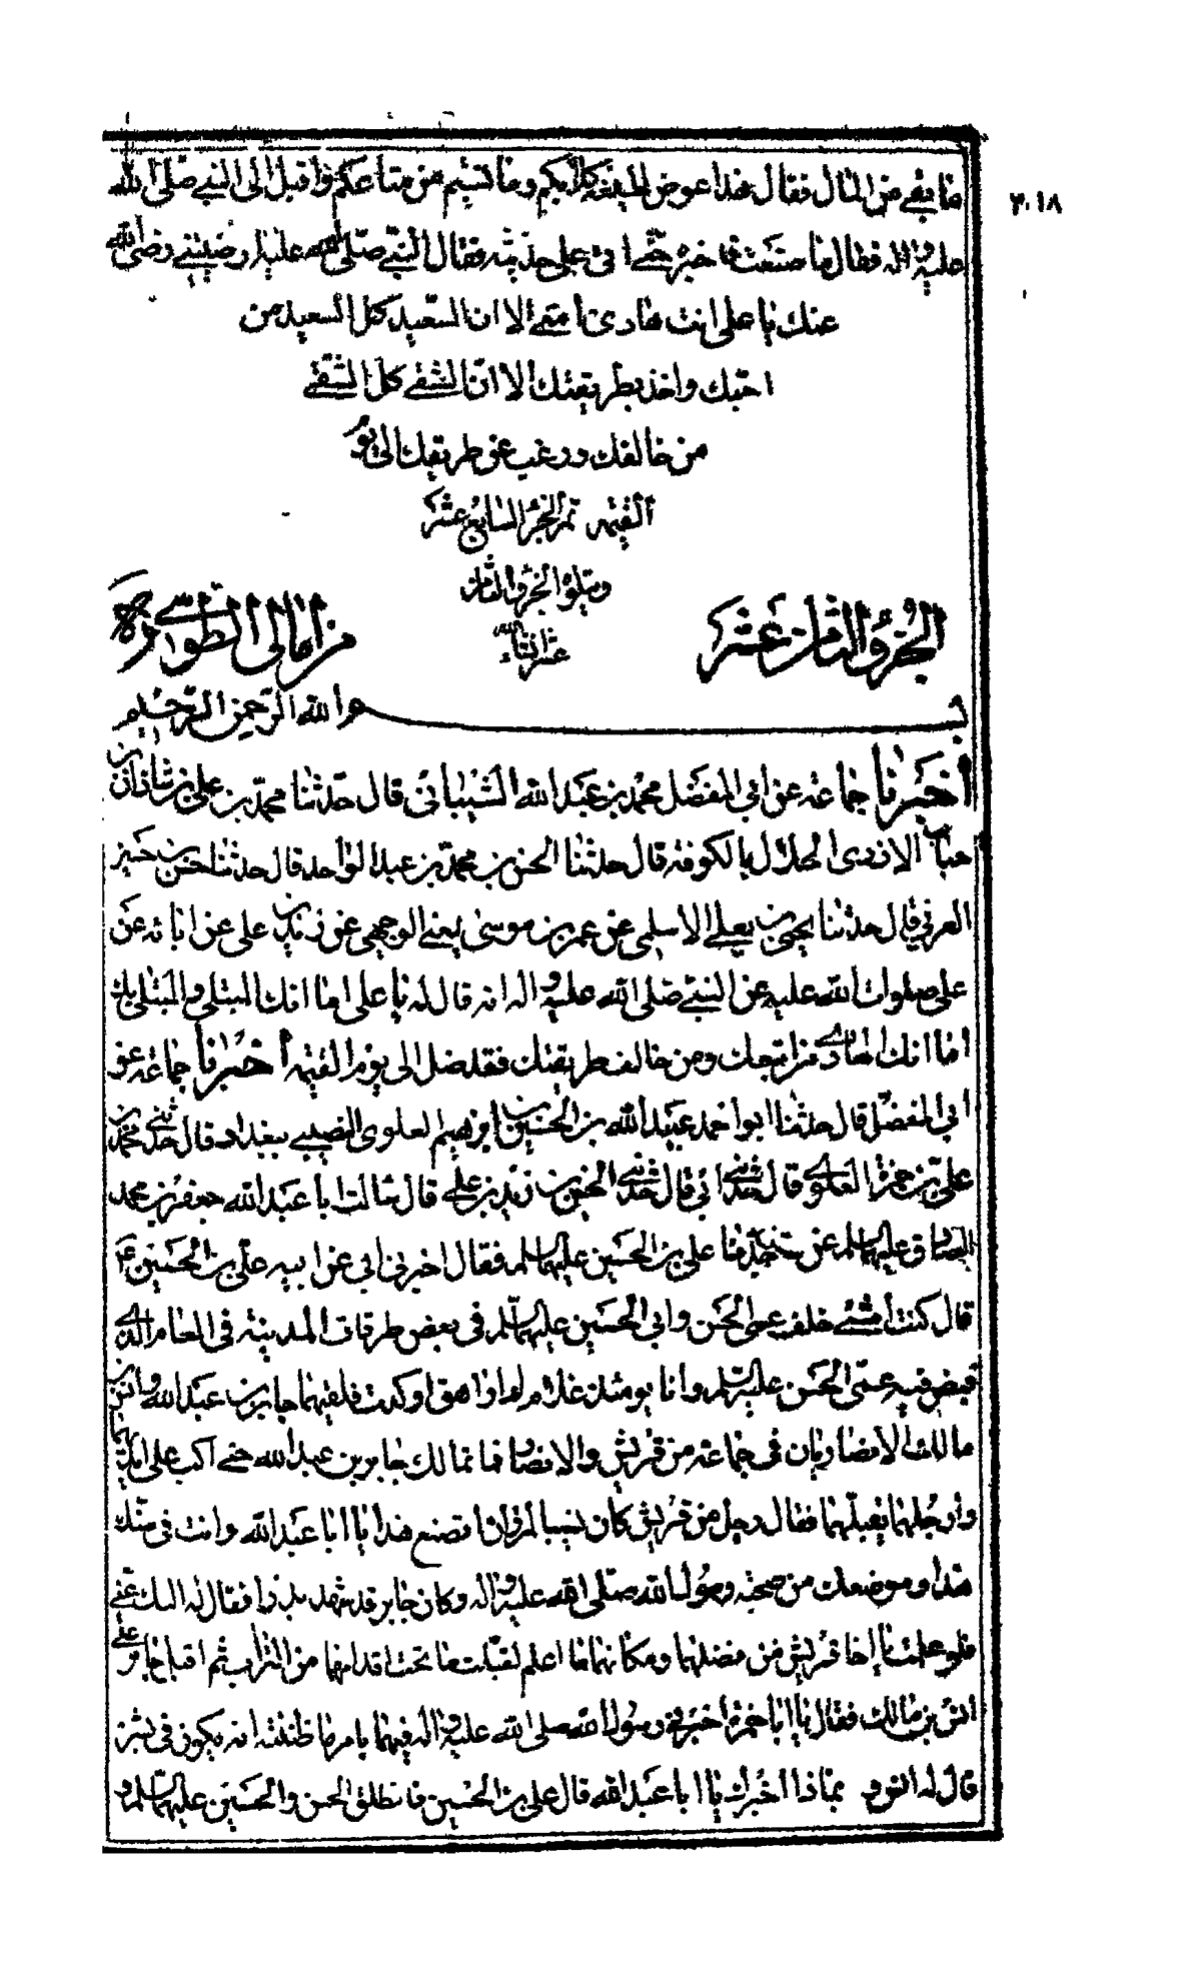 ما بقى من المال فقال هذا عوض لميلغة كلابكم وما نسيتم من متاعكم واقبل الى النبي صلى الله
٣٠١٨
عليه واله فقال ما صنعت فاخبره حتى اتى على حديثه فقال النبي صلى الله عليه ارضيتني رضى الله
عنك يا على انت هادى امتى الا ان السعيد كل السعيد من
احبك واخذ بطريقتك الا ان الشقى كل الشقى
من خالفك ورغب عن طريقك الى يوم
القيمه تم الجزء السابع عشر
ويتلوه الجزء الثامن
عشر انشاء الله
الجزء الثامن عشر
من امالى الطوسى ره
بسم الله الرحمن الرحيم
أخبرنا جماعة عن ابى المفضل محمد بن عبد الله الشيبانى قال حدثنا محمد بن على بن شاذان بن
حباب الازدى الخلال بالكوفة قال حدثنا الحسن بن محمد بن عبد الواحد قال حدثنا حسن بن حسين
العرنى قال حدثنا يحيى بن يعلى الاسلمى عن عمر بن موسى يعنى الوجيهى عن زيد بن على عن ابائه عن
على صلوات الله عليه عن النبي صلى الله عليه واله انه قال له يا على اما انك المبتلى والمبتلى بك
اما انك الهادى من اتبعك ومن خالف طريقتك فقد ضل الى يوم القيمه أخبرنا جماعة عن
ابى المفضل قال حدثنا ابو احمد عبيد الله بن الحسين بن ابرهيم العلوى النصيبى ببغداد قال حدثنى محمد بن
على بن حمزة العلوى قال حدثنى ابى قال حدثنى الحسين بن زيد بن على قال سالت ابا عبد الله جعفر بن محمد
الصادق عليهما السلم عن سن جدنا على بن الحسين عليهما السلم فقال اخبرنى ابى عن ابيه على بن الحسين ع
قال كنت أمشى خلف عمى الحسن وابى الحسين عليهما السلم فى بعض طرقات المدينة فى العام الذى
قبض فيه عمى الحسن عليه السلم وانا يومئذ غلام لم اراهق او كدت فلقيهما جابر بن عبد الله وانس بن
مالك الانصاريان فى جماعة من قريش والانصار فما تمالك جابر بن عبد الله حتى اكب على ايديهما
وأرجلهما يقبلهما فقال رجل من قريش كان نسيبا لمروان اتصنع هذا يا ابا عبد الله وانت فى سنك
هذا وموضعك من صحبة رسول الله صلى الله عليه واله وكان جابر قد شهد بدرا فقال له اليك عنى
فلو علمت يا اخا قريش من فضلهما ومكانهما ما اعلم لقبلت ما تحت اقدامهما من التراب ثم اقبل جابر على
انس بن مالك فقال يا ابا حمزة اخبرنى رسول الله صلى الله عليه واله فيهما بامر ما ظننته انه يكون فى بشر
قال له انس وبماذا أخبرك يا ابا عبد الله قال على بن الحسين فانطلق الحسن والحسين عليهما السلم و